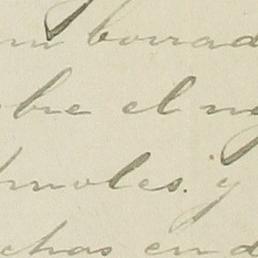 borrad
bre el ne
moles. y
chas en d